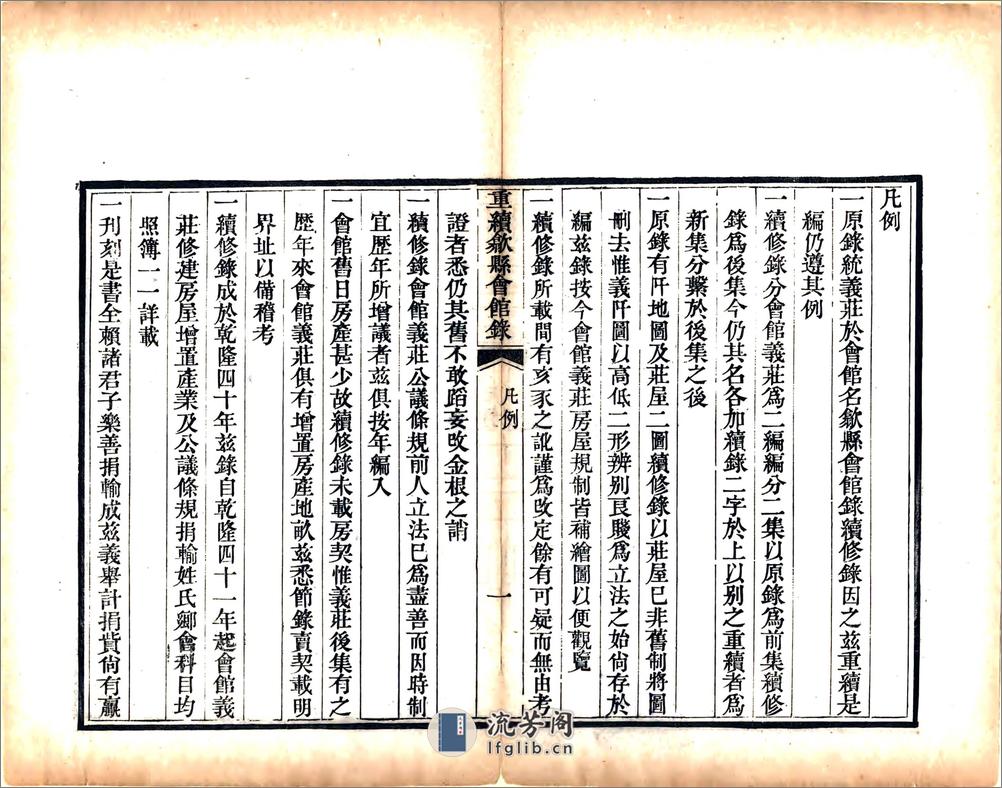 凡例
一原錄統義莊於會館名歙縣會館錄續修錄因之茲重續是
編仍遵其例
一續修錄分會館義莊爲二編編分二集以原錄爲前集續修
錄爲後集今仍其名各加續錄二字於上以别之重續者爲
新集分繫於後集之後
一原錄有阡地圖及莊屋二圖續修錄以莊屋已非舊制將圖
刪去惟義阡圖以高低二形辨别良賤爲立法之始尙存於
編茲錄按今會館義莊房屋規制皆補繪圖以便觀覽
一續修錄所載間有亥豕之訛謹爲改定餘有可疑而無由考
重續歙縣會館錄
凡例
一
證者悉仍其舊不敢蹈妄改金根之誚
一續修錄會館義莊公議條規前人立法已爲盡善而因時制
宜歷年所增議者茲俱按年編入
一會館舊日房產甚少故續修錄未載房契惟義莊後集有之
歷年來會館義莊俱有增置房產地畝茲悉節錄賣契載明
界址以備稽考
一續修錄成於乾隆四十年茲錄自乾隆四十一年起會館義
莊修建房屋增置產業及公議條規捐輸姓氏鄉會科目均
照簿一一詳載
一刋刻是書全賴諸君子樂善捐輸成茲義舉計捐貲尙有贏
流芳阁
lfglib.cn